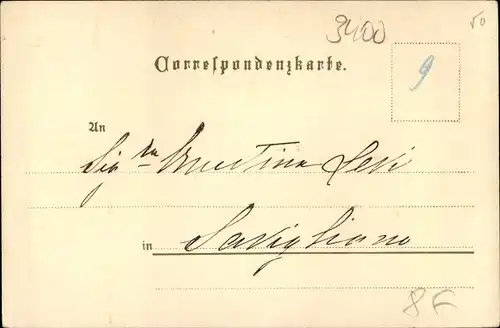 3400
50
Correspondenzkarte.
9
An
Sig.ra Ernestina Levi
in Savigliano
8 F